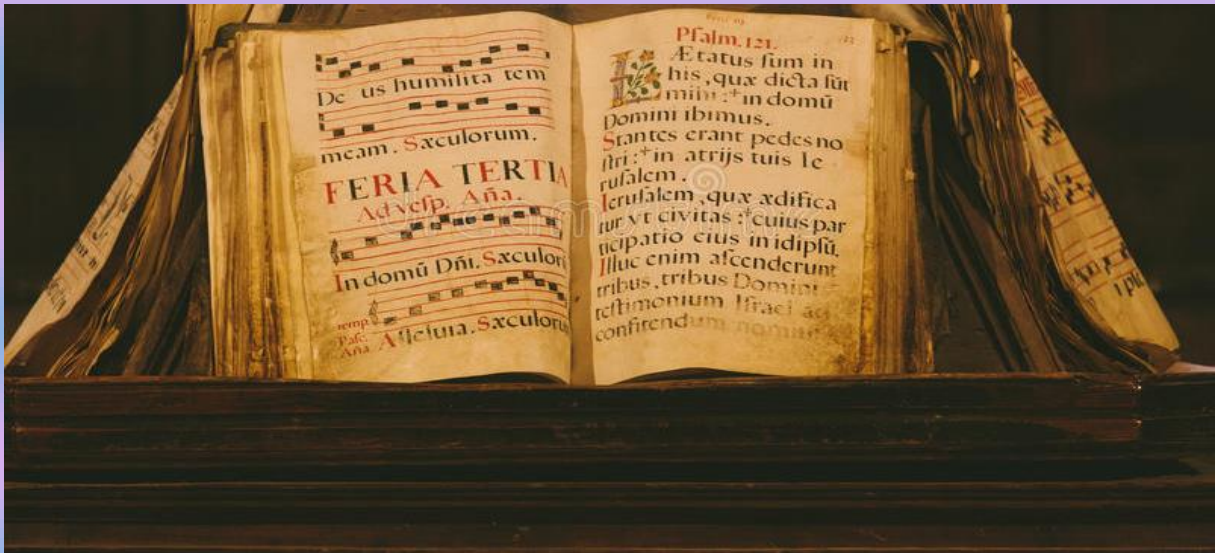 De us humilita tem
meam. Sæculorum.
FERIA TERTIA
Ad vesp. Aña.
In domū Dñi. Sæculoru
Temp.
Pasc.
Aña. Alleluia. Sæculoru
Psalm. 121.
LÆtatus sum in
his, quæ dicta sūt
mihi :+ in domū
Domini ibimus.
Stantes erant pedes no
stri :+ in atrijs tuis Ie
rusalem.
Ierusalem, quæ ædifica
tur vt civitas :+ cuius par
ticipatio eius in idipsū.
Illuc enim ascenderunt
tribus, tribus Domini
testimonium Israel ad
confitendum nomini